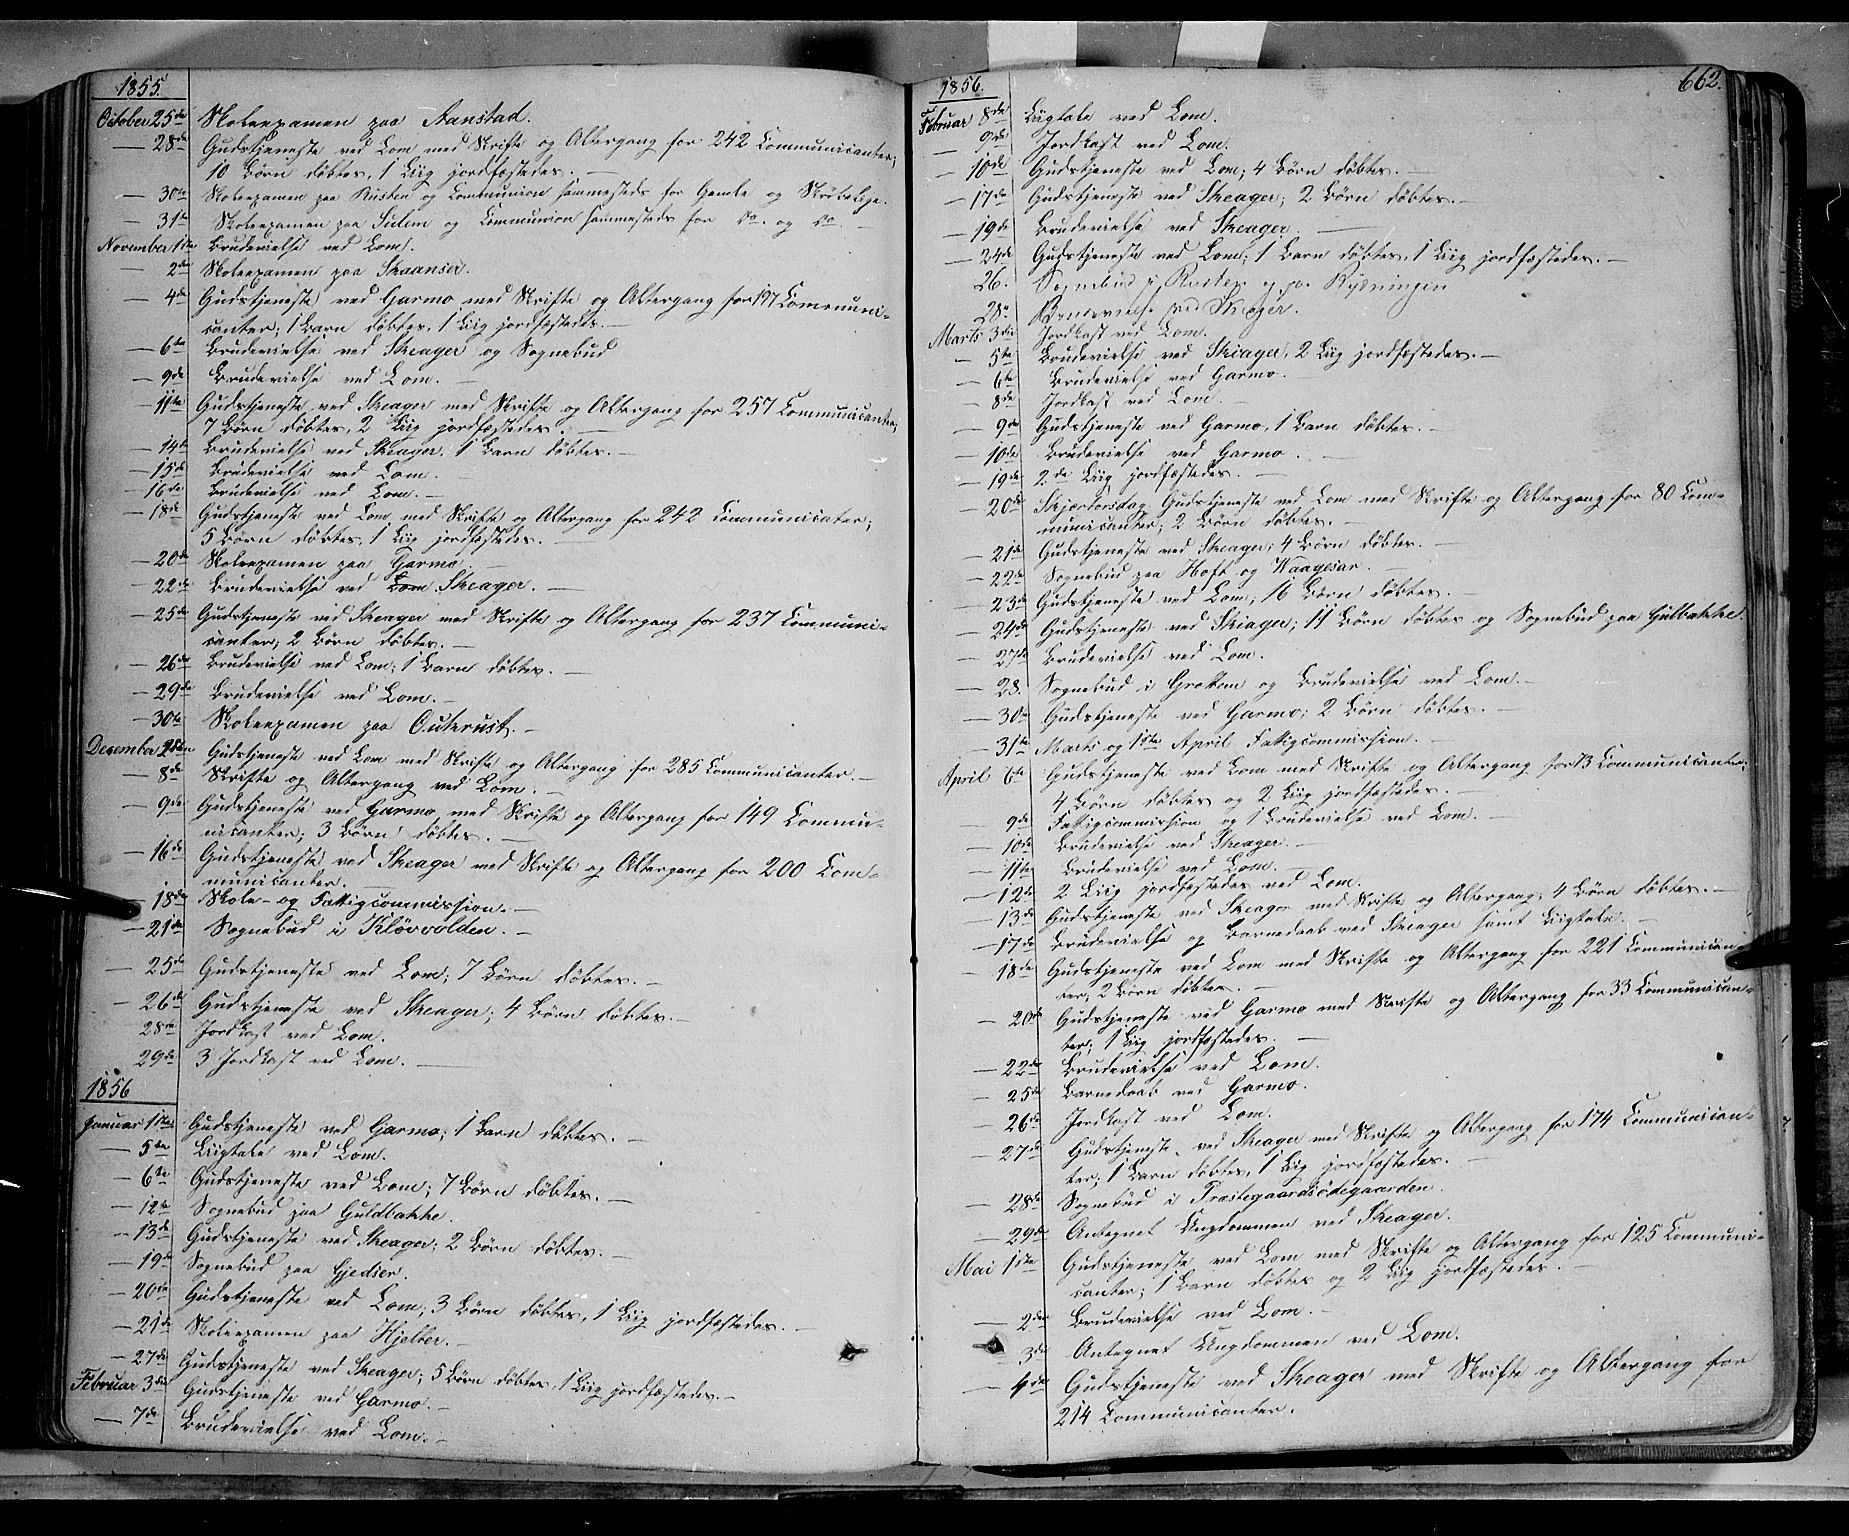 1855.
October 25de Skoleexamen paa Aanstad.
— 28de Gudstjeneste ved Lom med Skrifte og Altergang for 242 Communicanter;
10 Børn døbtes, 1 Liig jordfæstedes. —
— 30te Skoleexamen paa Rusten og Communion sammesteds for Gamle og Skrøbelige.
— 31te Skoleexamen paa Sulem og Communion sammesteds for do. og do. —
November 1ste Brudevielse ved Lom.
— 2den Skoleexamen paa Skaanser.
— 4de Gudstjeneste ved Garmo med Skrifte og Altergang for 197 Communi-
canter; 1 Barn døbtes, 1 Liig jordfæstedes. —
— 6te Brudevielse ved Skeager og Sognebud
— 9de Brudevielse ved Lom. —
— 11te Gudstjeneste ved Skeager med Skrifte og Altergang for 257 Communicanter;
7 Børn døbtes, 2 Liig jordfæstedes. —
— 14de Brudevielse ved Skeager, 1 Barn døbtes. —
— 15de Brudevielse ved Lom. —
— 16de Brudevielse ved Lom. —
— 18de Gudstjeneste ved Lom med Skrifte og Altergang for 242 Communicater;
5 Børn døbtes, 1 Liig jordfæstedes. —
— 20de Skoleexamen paa Garmo. —
— 22de Brudevielse ved Lom Skeager. —
— 25de Gudstjeneste ved Skeager med Skrifte og Altergang for 237 Communi-
canter; 2 Børn døbtes. —
— 26de Brudevielse ved Lom; 1 Barn døbtes. —
— 29de Brudevielse ved Lom. —
— 30te Skoleexamen paa Outrust. —
December 2den Gudstjeneste ved Lom med Skrifte og Altergang for 285 Communicanter. —
— 8de Skrifte og Altergang ved Lom. —
— 9de Gudstjeneste ved Garmo med Skrifte og Altergang for 149 Commu-
nicanter; 3 Børn døbtes. —
— 16de Gudstjeneste ved Skeager med Skrifte og Altergang for 200 Com-
municanter. —
— 18de Skole- og Fattigcommission. —
— 21de Sognebud i Kløvvolden. —
— 25de Gudstjeneste ved Lom; 7 Børn døbtes. —
— 26de Gudstjeneste ved Skeager; 4 Børn døbtes. —
— 28de Jordkast ved Lom.
— 29de 3 Jordkast ved Lom. —
1856
Januar 1ste Gudstjeneste ved Garmo; 1 Barn døbtes. —
— 5te Liigtale ved Lom.
— 6te Gudstjeneste ved Lom; 7 Børn døbtes. —
— 12te Sognebud paa Guldbakke.
— 13de Gudstjeneste ved Skeager; 2 Børn døbtes. —
— 19de Sognebud paa Gjedser.
— 20de Gudstjeneste ved Lom; 3 Børn døbtes, 1 Liig jordfæstedes. —
— 21de Skoleexamen paa Hjelter. —
— 27de Gudstjeneste ved Skeager; 5 Børn døbtes, 1 Liig jordfæstedes. —
Februar 3die Gudstjeneste ved Garmo. —
— 7de Brudevielse ved Lom. —
1856.
662.
Februar 8de Liigtale ved Lom.
— 9de Jordkast ved Lom.
— 10de Gudstjeneste ved Lom; 4 Børn døbtes. —
— 17de Gudstjeneste ved Skeager; 2 Børn døbtes. —
— 19de Brudevielse ved Skeager. —
— 24de Gudstjeneste ved Lom; 1 Barn døbtes, 1 Liig jordfæstedes. —
26. Sognebud i Rusten og paa Rydningen
28. Brudevielse ved Skeager.
Marts 3die Jordkast ved Lom.
— 5te Brudevielse ved Skeager, 2 Liig jordfæstedes. —
— 6te Brudevielse ved Garmo.
— 8de Jordkast ved Lom. —
— 9de Gudstjeneste ved Garmo, 1 Barn døbtes. —
— 10de Brudevielse ved Garmo. —
— 19de 2de Liig jordfæstedes. —
— 20de Skjærtorsdag Gudstjeneste ved Lom med Skrifte og Altergang for 80 Com-
municanter; 2 Børn døbtes. —
— 21de Gudstjeneste ved Skeager; 4 Børn døbtes. —
— 22de Sognebud paa Hoft og Kaagesar. —
— 23de Gudstjeneste ved Lom; 16 Børn døbtes. —
— 24de Gudstjeneste ved Skeager; 11 Børn døbtes og Sognebud paa Gulbakke.
— 27de Brudevielse ved Lom.
— 28. Sognebud i Grottem og Brudevielse ved Lom. —
— 30te Gudstjeneste ved Garmo; 2 Børn døbtes. —
— 31te Marts og 1ste April Fattigcommission. —
April 6te Gudstjeneste ved Lom med Skrifte og Altergang for 73 Communicanter;
4 Børn døbtes og 2 Liig jordfæstedes. —
— 9de Fattigcommission og 1 Brudevielse ved Lom. —
— 10de Brudevielse ved Skeager. —
— 11te Brudevielse ved Lom. —
— 12te 2 Liig jordfæstedes ved Lom.
— 13de Gudstjeneste ved Skeager med Skrifte og Altergang; 4 Børn døbtes. —
— 17de Brudevielse og Barnedaab ved Skeager samt Liigtale. —
— 18de Gudstjeneste ved Lom med Skrifte og Altergang for 221 Communican-
ter; 2 Børn døbtes. —
— 20de Gudstjeneste ved Garmo med Skrifte og Altergang for 33 Communican-
ter; 1 Liig jordfæstedes. —
— 22de Brudevielse ved Lom.
— 25de Barnedaab ved Garmo.
— 26de Jordkast ved Lom.
— 27de Gudstjeneste ved Skeager med Skrifte og Altergang for 174 Communican-
ter; 1 Barn døbtes, 1 Liig jordfæstedes. —
— 28de Sognebud i Præstegaardsødegaarden.
— 29de Antegnet Ungdommen ved Skeager.
Mai 1ste Gudstjeneste ved Lom med Skrifte og Altergang for 125 Communi-
canter; 1 Barn døbtes og 2 Liig jordfæstedes. —
— 2den Brudevielse ved Lom. —
— 3die Antegnet Ungdommen ved Lom.
— 4de Gudstjeneste ved Skeager med Skrifte og Altergang for
214 Communicanter.